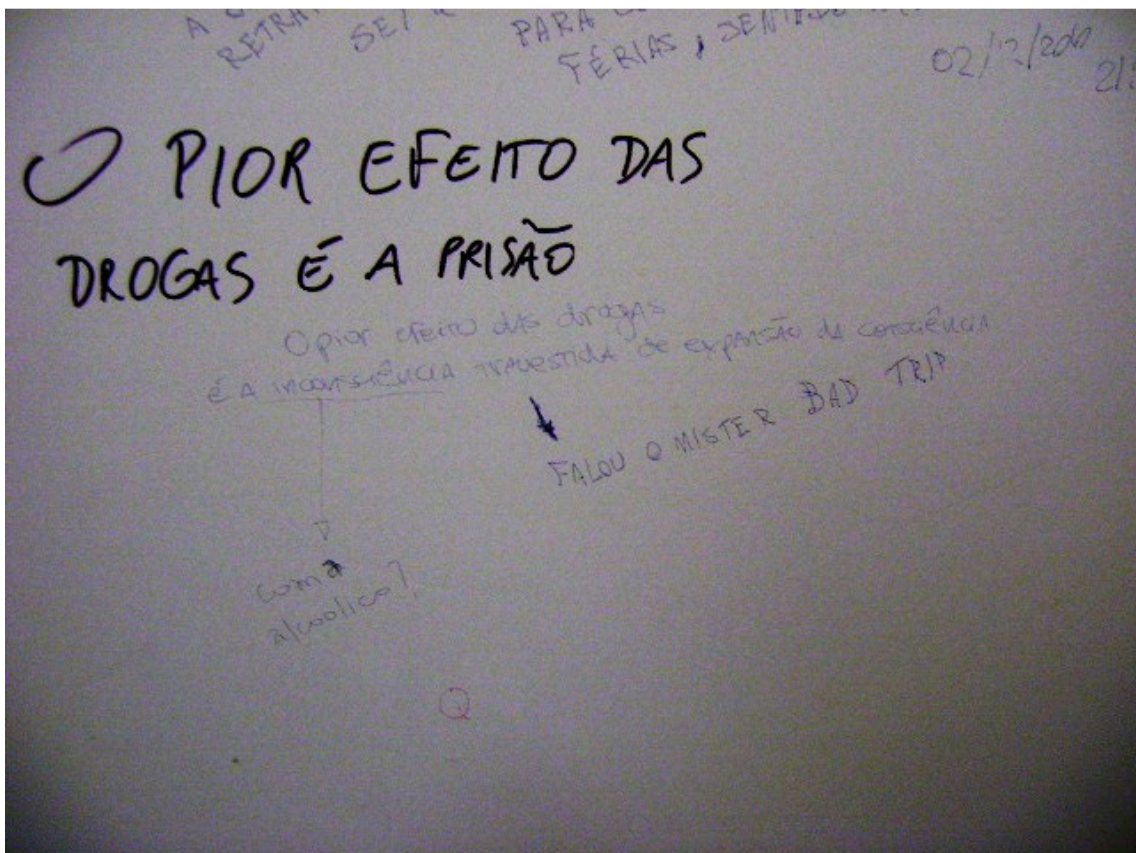 A
RETRA
SE
PARA
FÉRIAS, SENTADO
02/12/200
O PIOR EFEITO DAS
DROGAS É A PRISÃO
O pior efeito das drogas
É A inconsciÊncia TRAVESTIDA de expansão da consciÊnciA
FALOU O MISTER BAD TRIP
coma
alcoolico?
Q